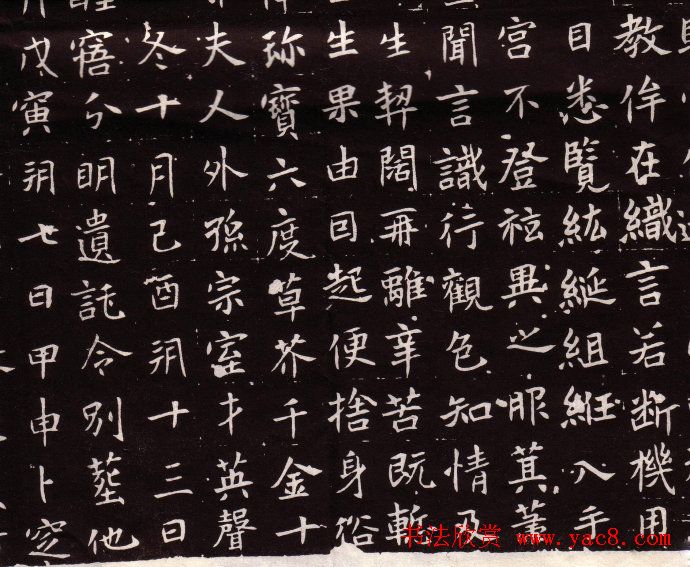 教侔在織言若断機用
目悉覽紘綖組絍入手
宮不登袨異之服箕箒
聞言識行觀色知情及
生契闊再離辛苦既斬
生果由囙起便捨身俗
珎寶六度草芥千金十
夫人外孫宗室才英聲
冬十月己酉朔十三日
寤分明遺託令別葬他
戊寅朔七日甲申卜窆
书法欣赏 www.yac8.com